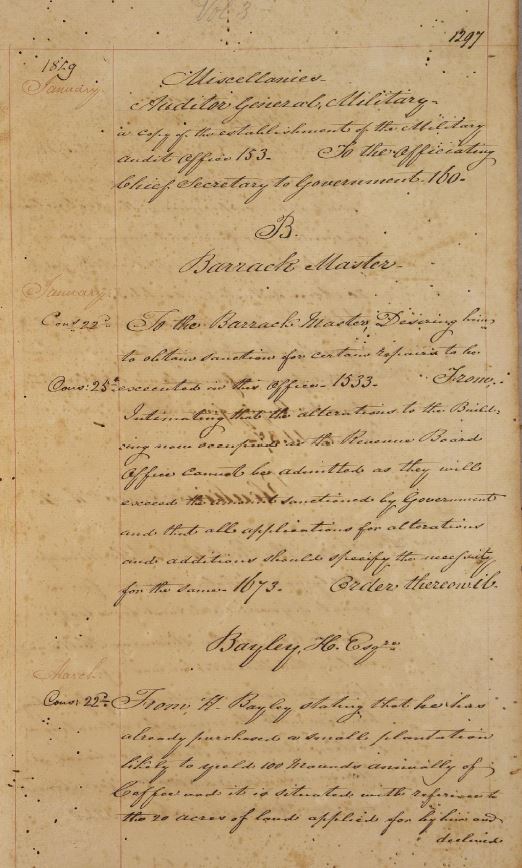 Vol 3
1297
1829
January
Miscellanies
Auditor General, Military-
a copy of the establishment of the Military
audit Office 153- To the Officiating
Chief Secretary to Government 160-
B.
Barrack Master-
January
Cons: 22d To the Barrack Master, Desiring him
to obtain sanction for certain repairs to be
Cons: 25th executed in this Office- 1533- From,
Intimating that the alterations to the Build-
ing now occupied as the Revenue Board
Office cannot be admitted as they will
exceed the sanctioned by Government
and that all applications for alterations
and additions should specify the necessity
for the same- 1673- Order thereon ib.
Bayley, H. Esqre
March
Cons: 22d From, H. Bayley stating that he has
already purchased a small plantation
likely to yield 100 Maunds annually of
Coffee and it is situated with reference to
the 20 acres of land applied for by him and
declined